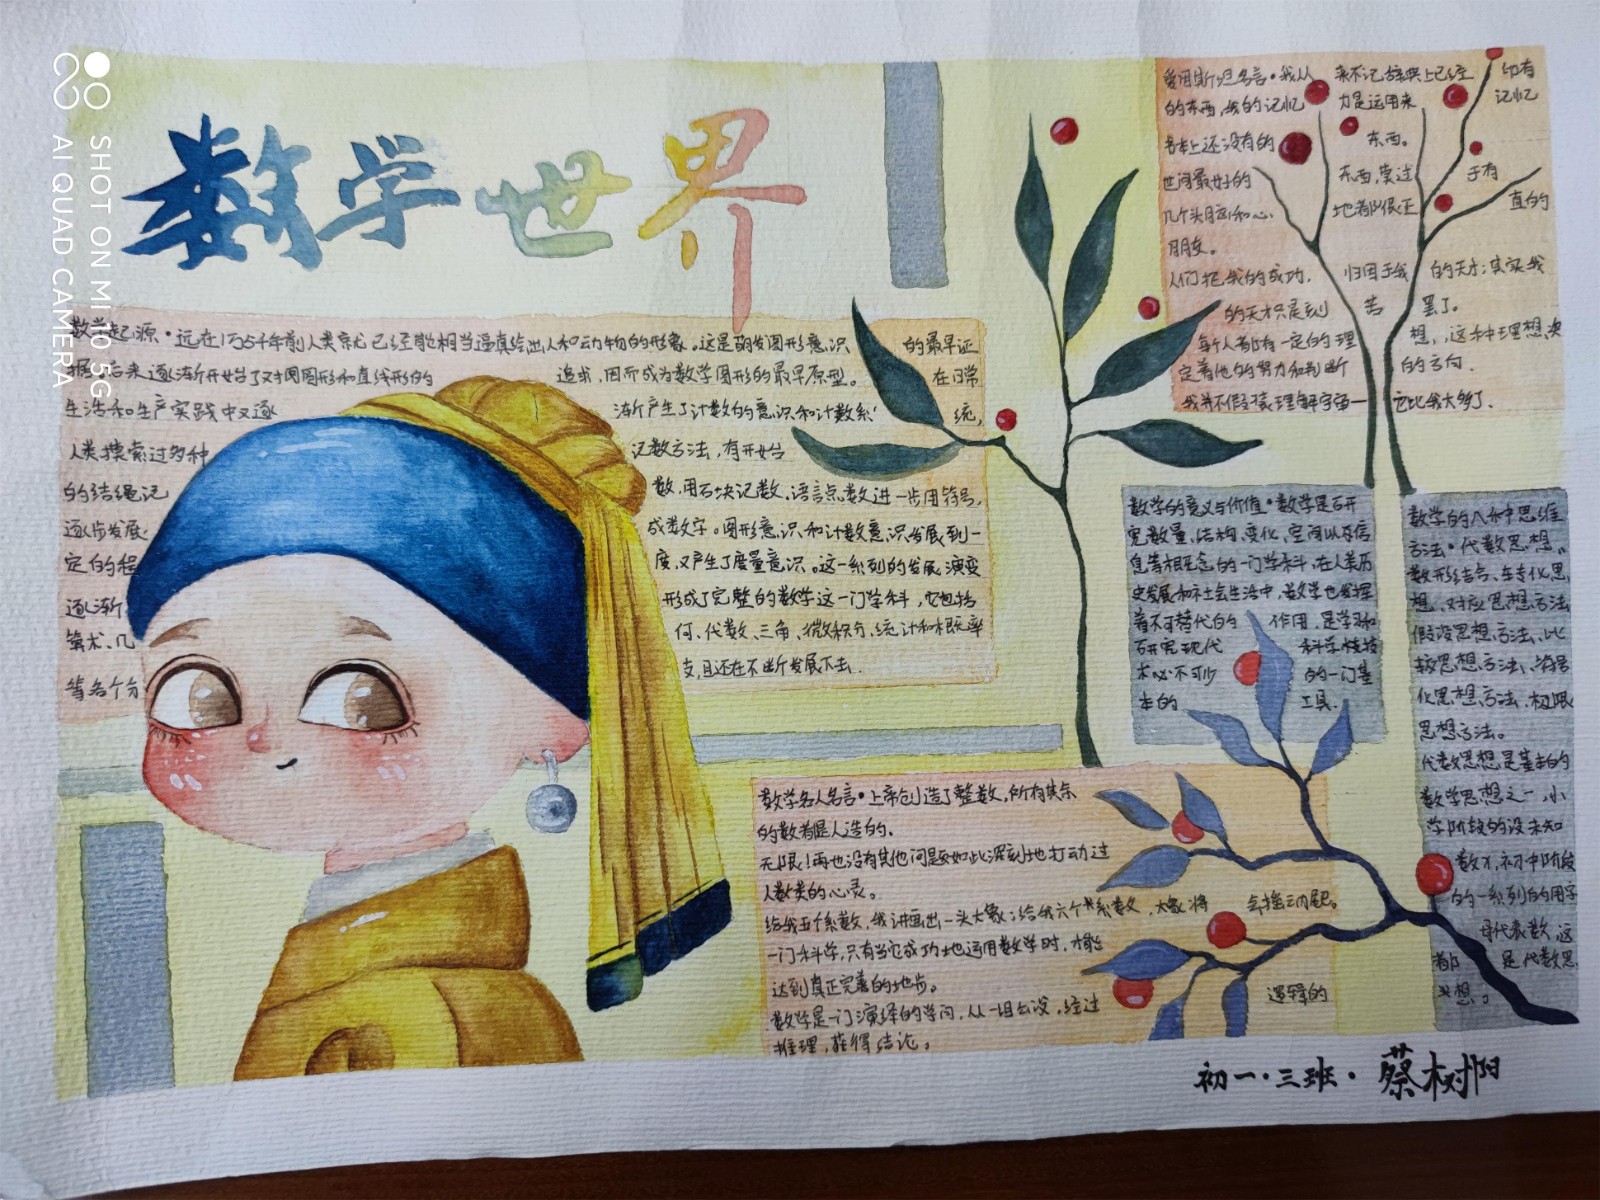 SHOT ON MI 10 5G
AI QUAD CAMERA
数学世界
数学起源·远在1万5千年前人类就已经能相当逼真绘出人和动物的形象。这是萌发图形意识的最早证
据。后来逐渐开始了对圆图形和直线形的追求,因而成为数学图形的最早原型。在日常
生活和生产实践中又逐渐产生了计数的意识和计数系统,
人类摸索过多种记数方法,有开始
的结绳记数,用石块记数,语言点数进一步用符号,
逐步发展成数字。图形意识和计数意识发展到一
定的程度,又产生了度量意识。这一系列的发展演变
逐渐形成了完整的数学这一门学科,它包括
算术、几何、代数、三角、微积分、统计和概率
等各个分支,且还在不断发展下去.
爱因斯坦名言·我从来不记辞典上已经印有
的东西,我的记忆力是运用来记忆
书本上还没有的东西。
世间最好的东西,莫过于有
几个头脑和心地都很正直的
朋友。
人们把我的成功,归因于我的天才;其实我
的天才只是刻苦罢了。
每个人都有一定的理想,这种理想决
定着他的努力和判断的方向.
我并不假装理解宇宙一它比我大多了.
数学的意义与价值·数学是研
究数量、结构、变化、空间以及信
息等概念的一门学科,在人类历
史发展和社会生活中,数学也发挥
着不可替代的作用,是学习和
研究现代科学技
术必不可少的一门基
本的工具.
数学的八种思维
方法·代数思想、
数形结合、转化思
想、对应思想方法
假设思想方法、比
较思想方法、符号
化思想方法、极限
思想方法。
代数思想是基本的
数学思想之一,小
学阶段的设未知
数x,初中阶段
的一系列的用字
母代表数,这
都是代数思
想。
数学名人名言·上帝创造了整数,所有其余
的数都是人造的.
无限!再也没有其他问题如此深刻地打动过
人类的心灵。
给我五个系数,我讲画出一头大象;给我六个系数,大象将会摇动尾巴。
一门科学,只有当它成功地运用数学时,才能
达到真正完善的地步。
数学是一门演绎的学问,从一组公设,经过逻辑的
推理,获得结论。
初一·三班·蔡树阳